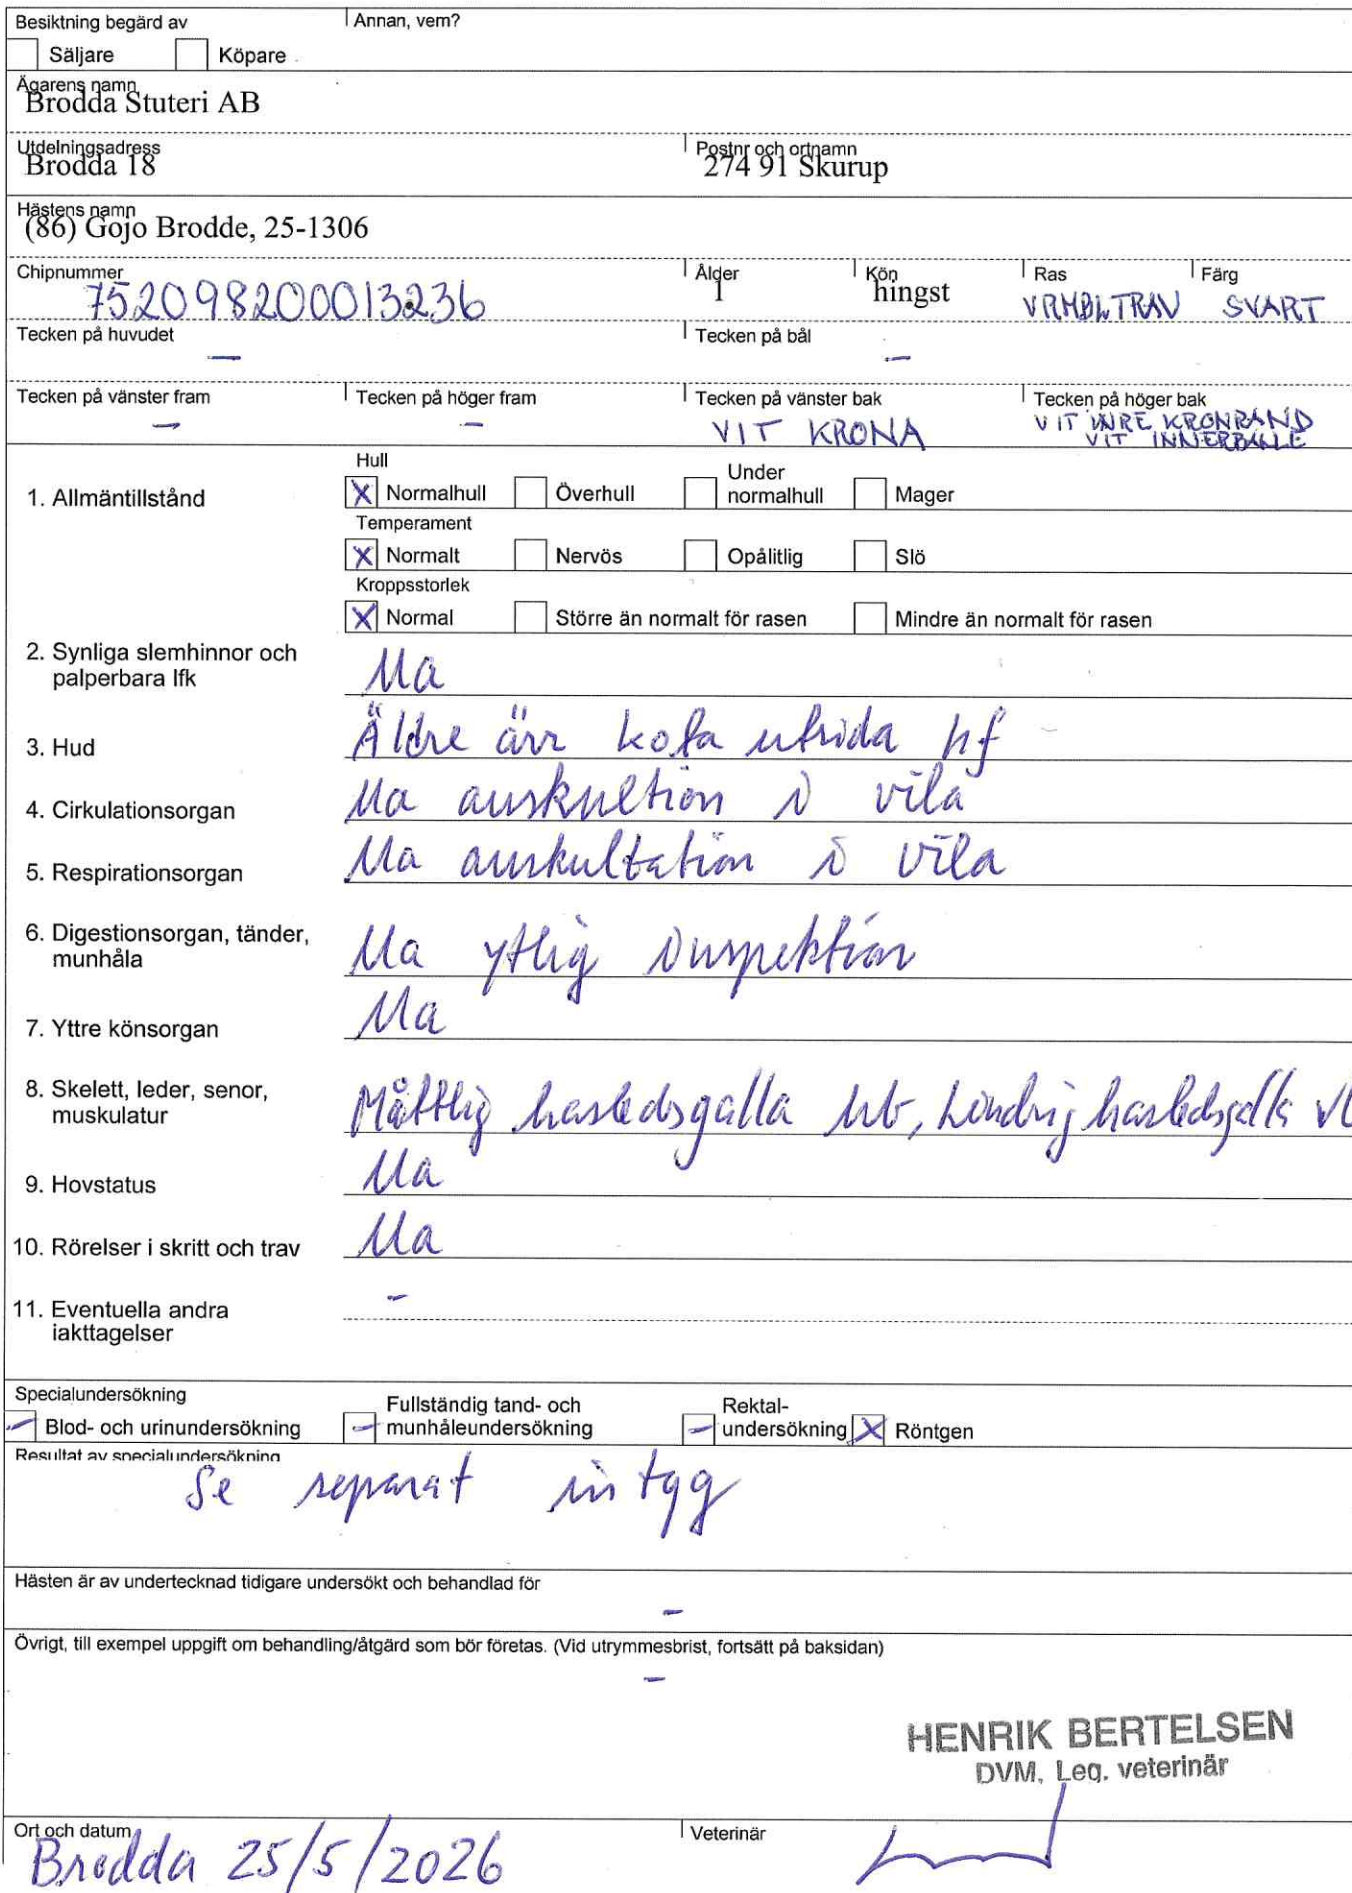 Besiktning begärd av Annan, vem?
Säljare Köpare
Ägarens namn
Brodda Stuteri AB
Utdelningsadress Postnr och ortnamn
Brodda 18 274 91 Skurup
Hästens namn
(86) Gojo Brodde, 25-1306
Chipnummer Ålder Kön Ras Färg
752098200013236 1 hingst VRMBLTRAV SVART
Tecken på huvudet Tecken på bål
– –
Tecken på vänster fram Tecken på höger fram Tecken på vänster bak Tecken på höger bak
– – VIT KRONA VIT INRE KRONRAND
VIT INNERBALLE
Hull
1. Allmäntillstånd X Normalhull Överhull Under normalhull Mager
Temperament
X Normalt Nervös Opålitlig Slö
Kroppsstorlek
X Normal Större än normalt för rasen Mindre än normalt för rasen
2. Synliga slemhinnor och
palperbara lfk Ua
3. Hud Äldre ärr kota utsida hf
4. Cirkulationsorgan Ua auskultion i vila
5. Respirationsorgan Ua auskultation i vila
6. Digestionsorgan, tänder,
munhåla Ua ytlig inspektion
7. Yttre könsorgan Ua
8. Skelett, leder, senor,
muskulatur Måttlig hasledsgalla hb, Lindrig hasledsgalla vb
9. Hovstatus Ua
10. Rörelser i skritt och trav Ua
11. Eventuella andra –
iakttagelser
Specialundersökning
– Blod- och urinundersökning – Fullständig tand- och munhåleundersökning – Rektal-undersökning X Röntgen
Resultat av specialundersökning
Se separat intyg
Hästen är av undertecknad tidigare undersökt och behandlad för
–
Övrigt, till exempel uppgift om behandling/åtgärd som bör företas. (Vid utrymmesbrist, fortsätt på baksidan)
–
HENRIK BERTELSEN
DVM, Leg. veterinär
Ort och datum Veterinär
Brodda 25/5/2026